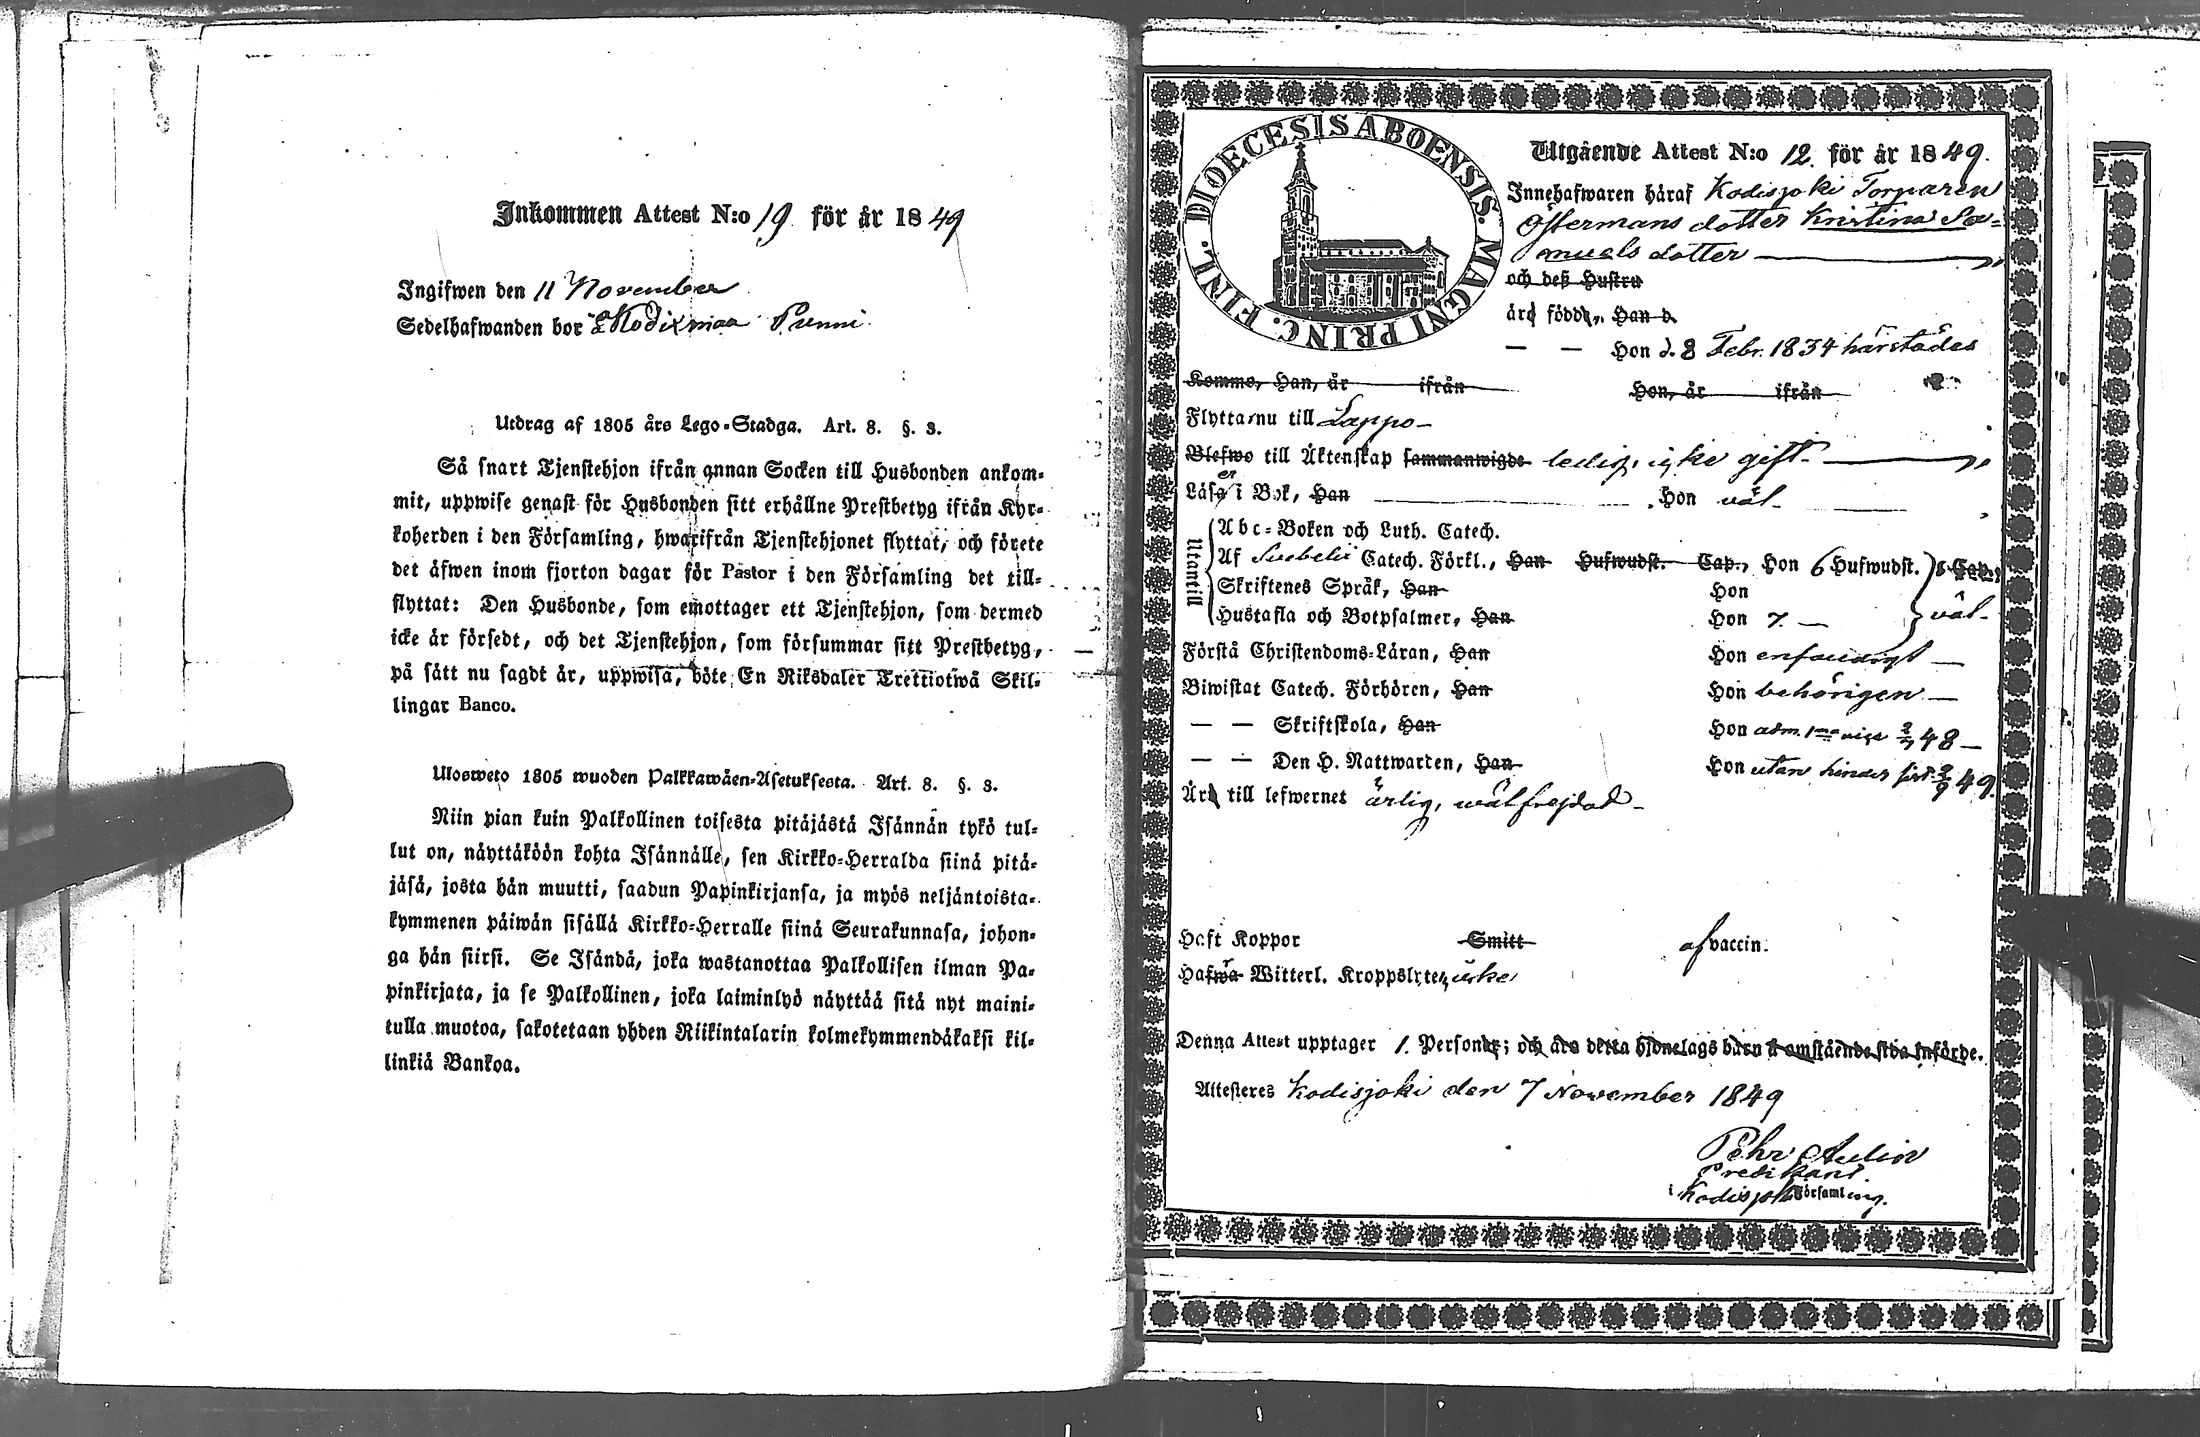 Inkommen Attest N:o 19 för år 1849
Ingifwen den 11 November
Sedelhafwanden bor Kodixmaa Punni
Utdrag af 1805 års Lego-Stadga. Art. 8. §. 3.
Så snart Tjenstehjon ifrån annan Socken till Husbonden ankom-
mit, uppwise genast för Husbonden sitt erhållne Prestbetyg ifrån Kyr-
koherden i den Församling, hwarifrån Tjenstehjonet flyttat, och förete
det äfwen inom fjorton dagar för Pastor i den Församling det till-
flyttat: Den Husbonde, som emottager ett Tjenstehjon, som dermed
icke är försedt, och det Tjenstehjon, som försummar sitt Prestbetyg,
på sätt nu sagdt är, uppwisa, böte En Riksdaler Trettiotwå Skil-
lingar Banco.
Ulosweto 1805 wuoden Palkkawäen-Asetuksesta. Art. 8. §. 3.
Niin pian kuin Palkollinen toisesta pitäjästä Isännän tykö tul-
lut on, näyttäköön kohta Isännälle, sen Kirkko-Herralda siinä pitä-
jäsä, josta hän muutti, saadun Papinkirjansa, ja myös neljäntoista-
kymmenen päiwän sisällä Kirkko-Herralle siinä Seurakunnasa, johon-
ga hän siirsi. Se Isändä, joka wastanottaa Palkollisen ilman Pa-
pinkirjata, ja se Palkollinen, joka laiminlyö näyttää sitä nyt maini-
tulla muotoa, sakotetaan yhden Riikintalarin kolmekymmendäkaksi kil-
linkiä Bankoa.
DIOECESIS ABOENSIS. MAGNI PRINC. FINL.
Utgående Attest N:o 12. för år 1849.
Innehafwaren häraf Kodisjoki Torparen
Östermans dotter Kristina Sa-
muels dotter
och deß Hustru
äro födde, Han d.
— — Hon d. 8 Febr. 1834 härstädes
Kommo, Han, år ifrån Hon, år ifrån
Flytta nu till Lappo
Blefwo till Äktenskap sammanwigde ledig, icke gift
Läsa i Bok, Han Hon väl
Utantill
Abc-Boken och Luth. Catech.
Af Svebelii Catech. Förkl., Han Hufwudst. Cap., Hon 6 Hufwudst. Cap.
Skriftenes Språk, Han Hon
Hustafla och Botpsalmer, Han Hon 7. väl
Förstå Christendoms-Läran, Han Hon enfaldigt
Biwistat Catech. Förhören, Han Hon behörigen
— — Skriftskola, Han Hon adm. 48
— — Den H. Nattwarden, Han Hon utan hinder sist 49.
Äro till lefwernet ärlig, wälfrejdad
Haft Koppor Smitt af vaccin.
Hafwa Witterl. Kroppslyten icke
Denna Attest upptager 1. Personer; och äro detta hjonelags barn å omstående sida införde.
Attesteres Kodisjoki den 7 November 1849
Pehr Aulin
Predikant.
i Kodisjoki Församling.